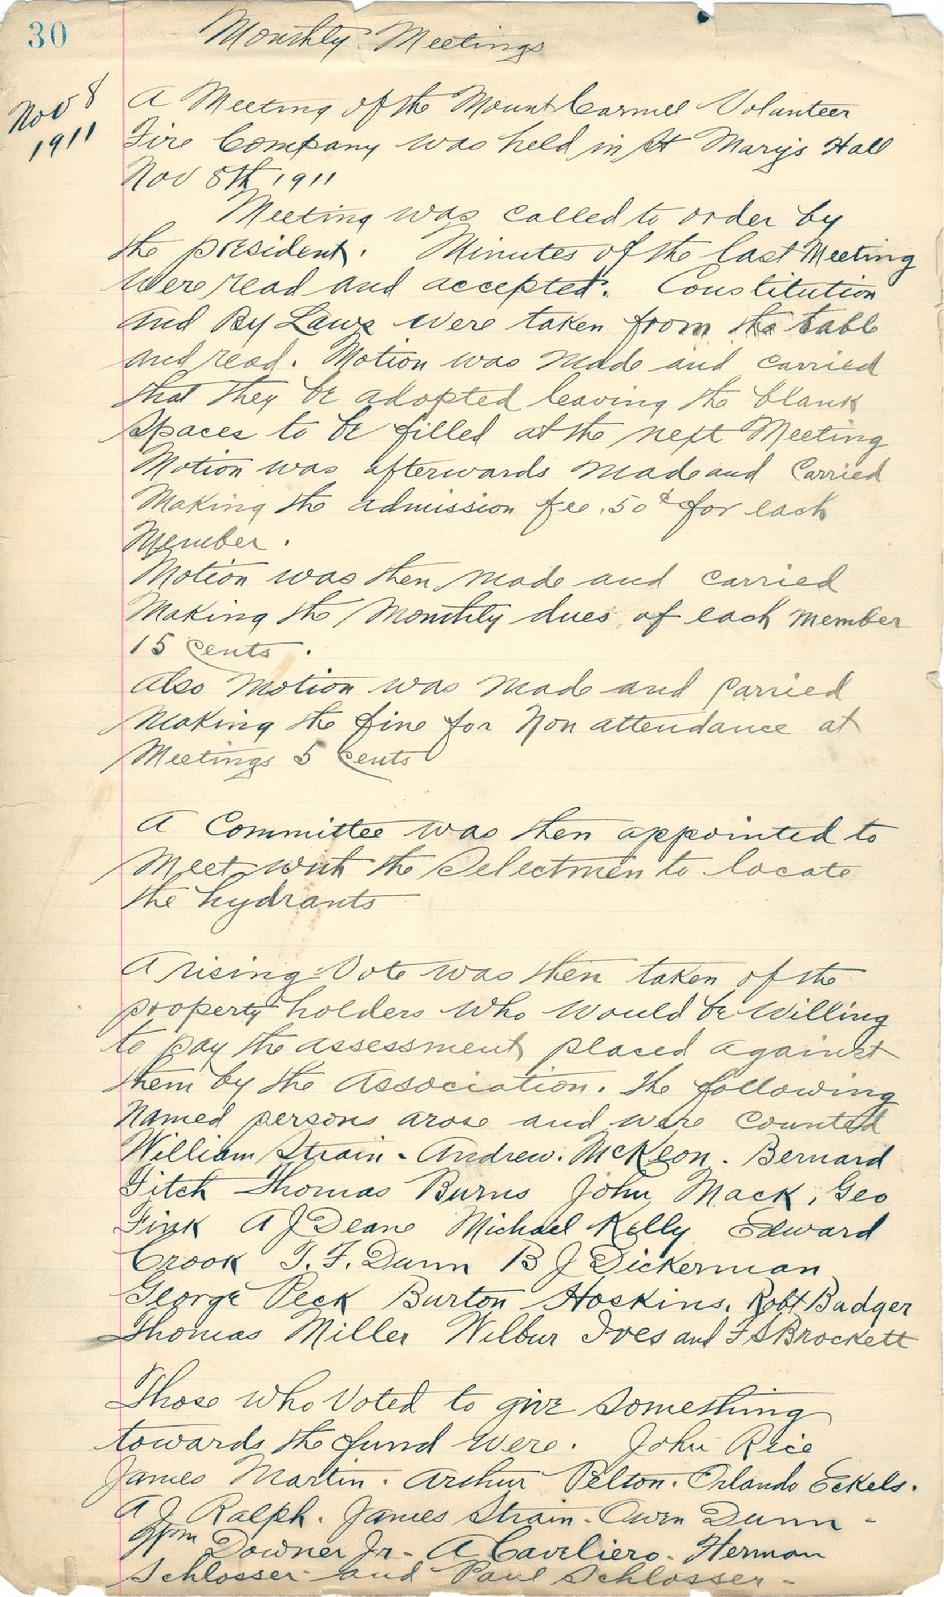 30
Monthly Meetings
Nov 8
1911
A Meeting of the Mount Carmel Volunteer
Fire Company was held in St Mary's Hall
Nov 8th 1911
Meeting was called to order by
the president. Minutes of the last Meeting
were read and accepted. Constitution
and By Laws were taken from the table
and read. Motion was made and carried
that they be adopted leaving the blank
spaces to be filled at the next Meeting
Motion was afterwards made and carried
Making the admission fee .50¢ for each
Member.
Motion was then made and carried
Making the Monthly dues of each member
15 cents.
Also Motion was made and carried
Making the fine for Non attendance at
Meetings 5 cents
A Committee was then appointed to
Meet with the Selectmen to locate
the hydrants
A rising Vote was then taken of the
property holders who would be willing
to pay the assessment placed against
them by the Association. The following
Named persons arose and were counted
William Strain - Andrew. McKeon - Bernard
Fitch Thomas Burns John Mack, Geo
Fink A J Deane Michael Kelly Edward
Crook T. F. Dunn B J Dickerman
George Peck Burton Hoskins. Robt Badger
Thomas Miller Wilbur Ives and F S Brockett
Those who Voted to give something
towards the fund were. John Rice
James Martin. Arthur Pelton. Orlando Eckels.
A J Ralph. James Strain - Owen Dunn -
Wm Downer Jr - A Cavaliero - Herman
Schlosser - and Paul Schlosser -